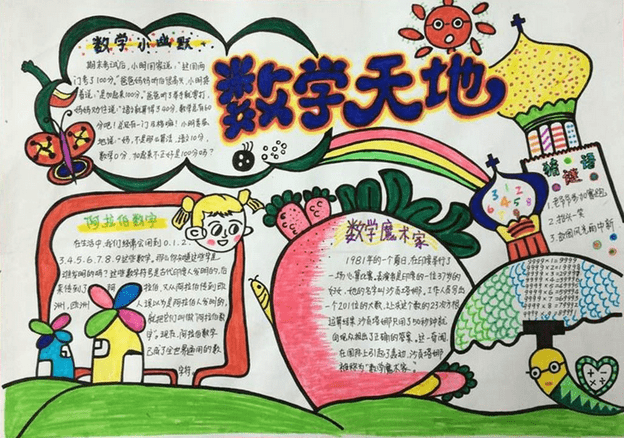 数学天地
数学小幽默
期末考试后,小明回家说:“这回两
门考了100分,”爸爸妈妈听后很高兴,小明接
着说:“是加起来100分。”爸爸听了举手就要打,
分吧!总还有一门及格嘛!小明委屈
地说:“妈,不是那么算法,语文10分,
数学0分,加起来不正好是100分吗?
阿拉伯数字
在生活中,我们经常会用到0.1.2.
3.4.5.6.7.8.9这些数字,那么你知道这些字是
谁发明的吗?这些数字符号是古代印度人发明的,后
来传到了阿拉伯,又从阿拉伯传到欧
洲,欧洲人误以为是阿拉伯人发明的,
就把它们叫做“阿拉伯数
字”。现在,阿拉伯数字
已成了全世界通用的数
字符
数学魔术家
1981年的一个夏日,在印度举行了
一场心算比赛,表演者是印度的一位37岁的
妇女,他的名字叫沙贡塔娜,工作人员写出
一个201位的大数,让求这个数的23次方根
运算结果,沙贡塔娜只用了50秒钟就
向观众报出了正确的答案。这一奇闻,
在国际上引起了轰动,沙贡塔娜
被称为“数学魔术家”。
猜谜语
2.抬头一笑
1 2 3
4 5 8
9999×1=9999
+ -
× ÷